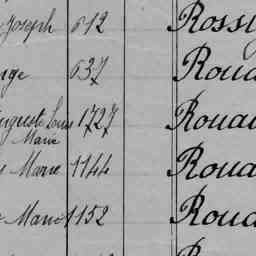 Joseph 612 Rossi
nge 637 Roua
uguste Louis 1727 Roua
Marie
Marie 1144 Roua
Marie 1152 Roua